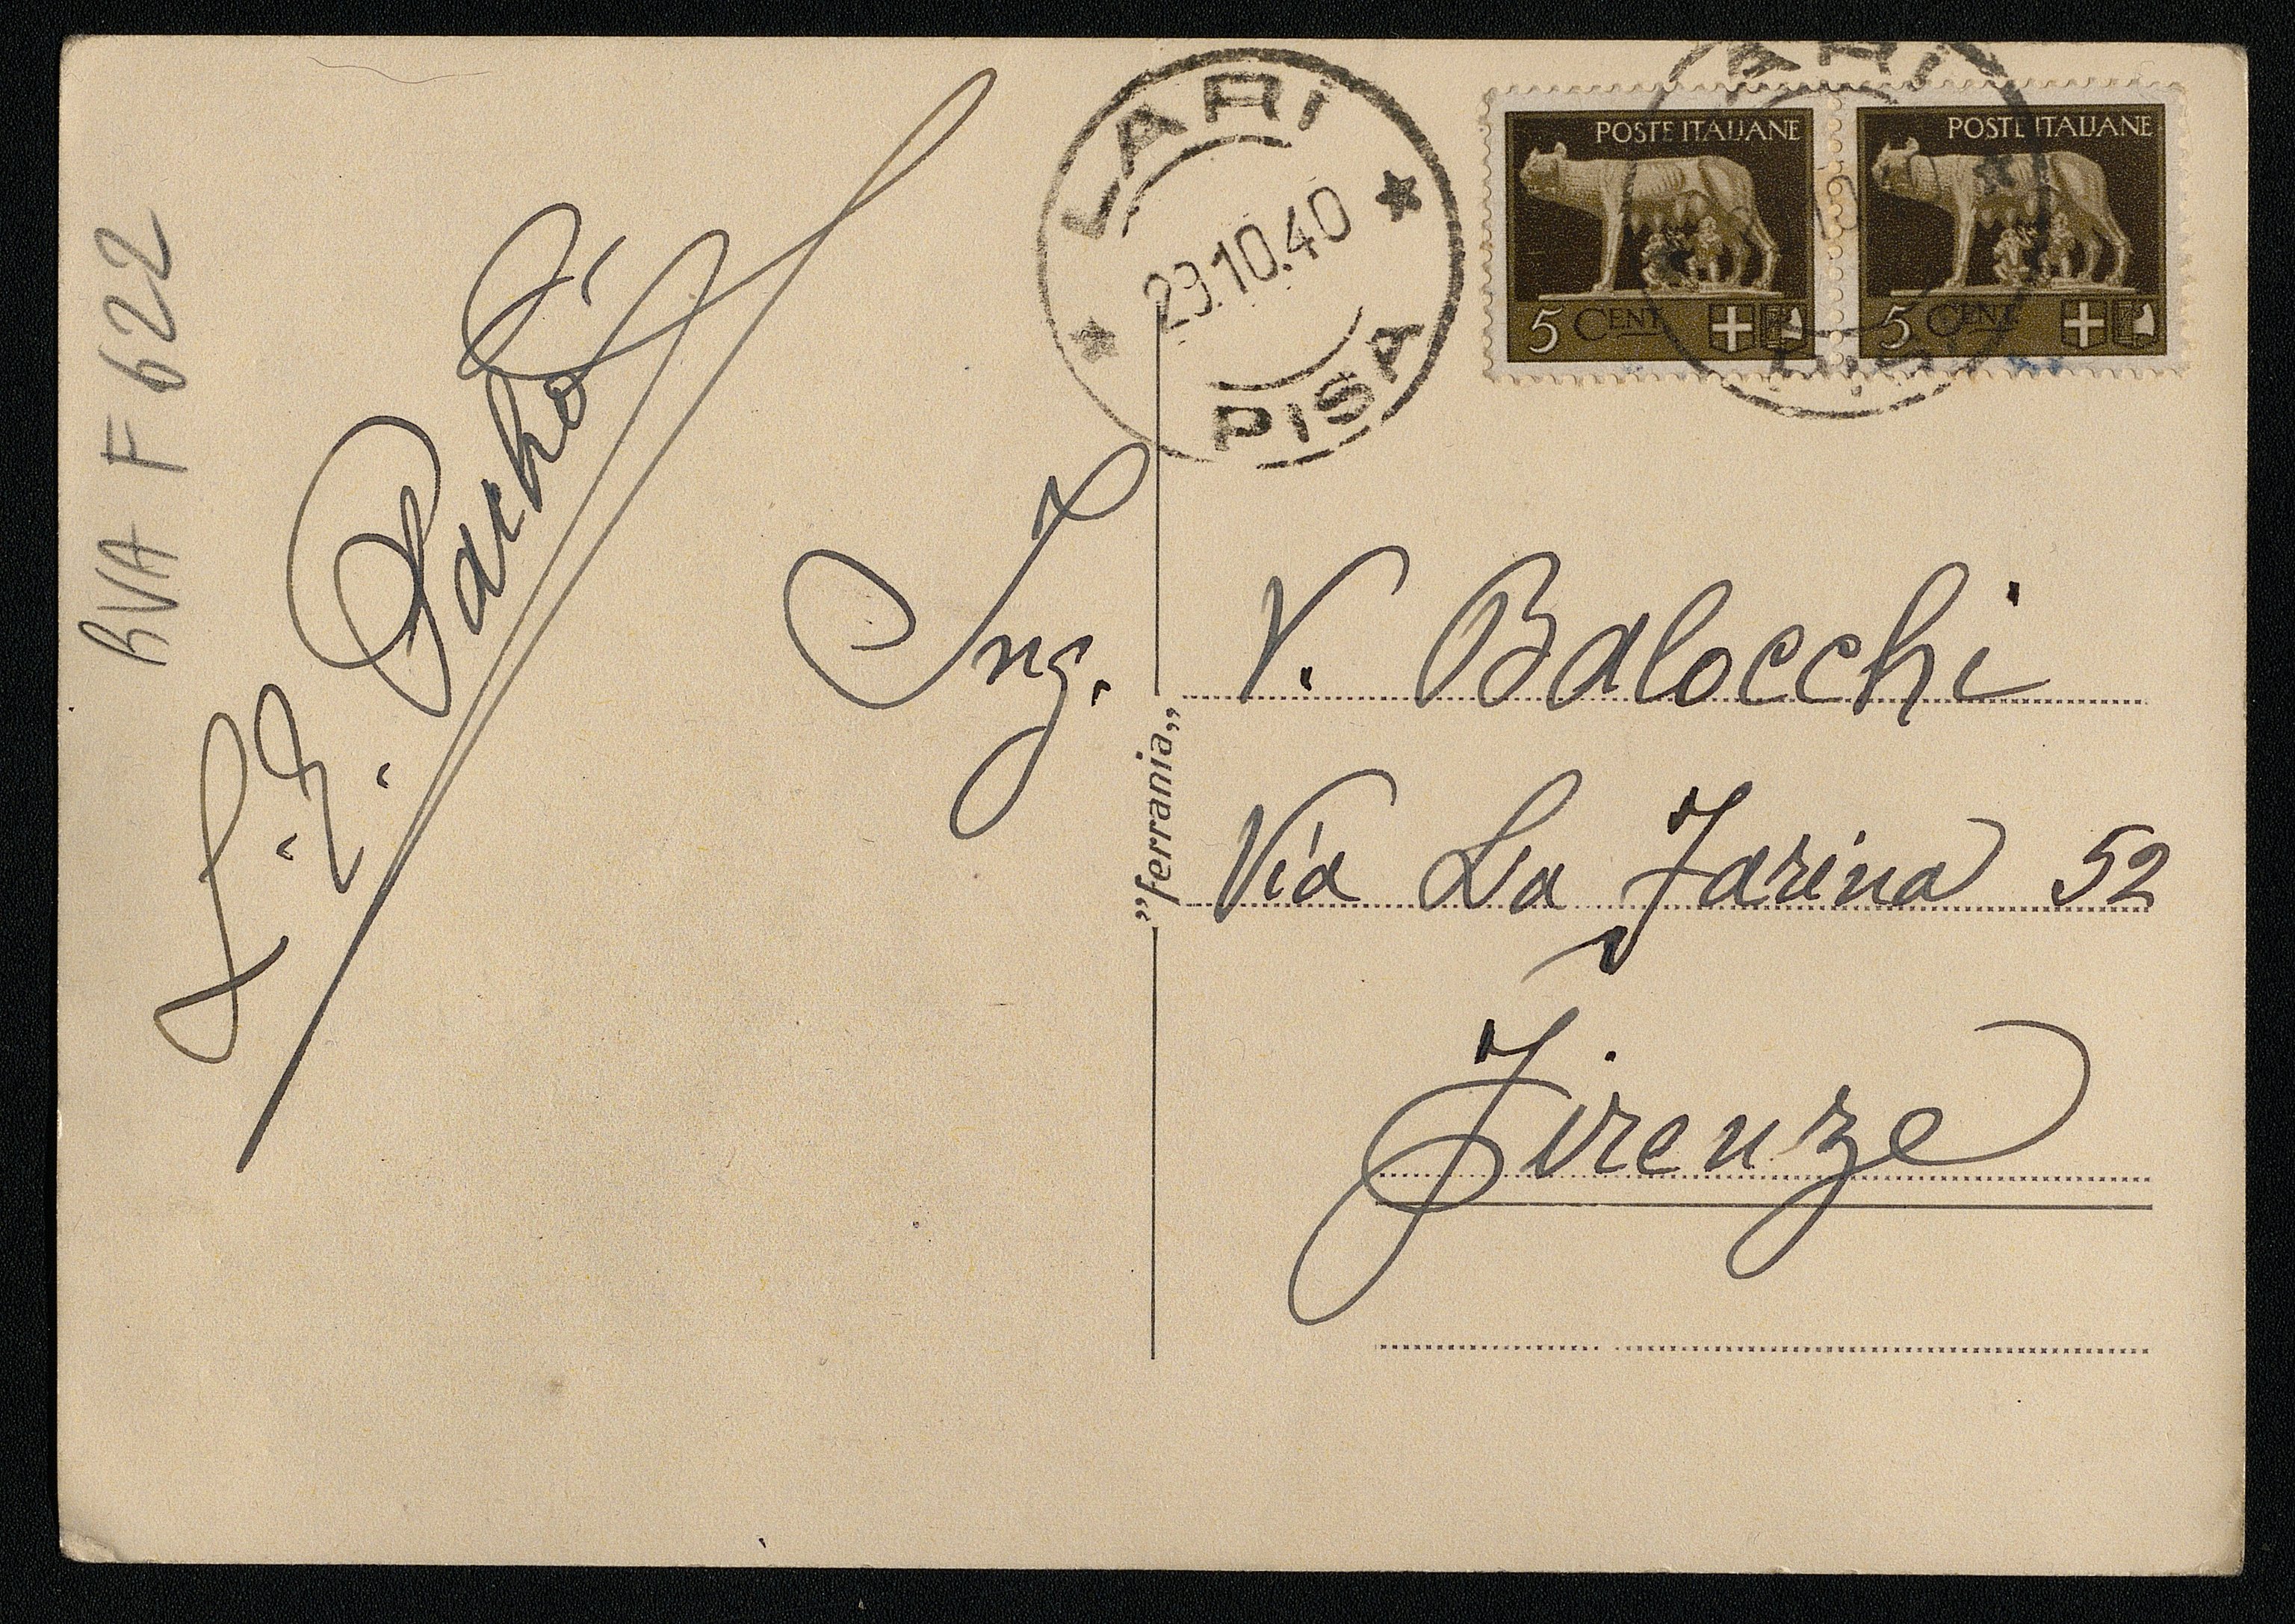 RVA F 622
LARI
29.10.40
PISA
POSTE ITALIANE
5 CENT
POSTE ITALIANE
5 CENT
Ing. V. Balocchi
Via La Farina 52
Firenze
"ferrania"